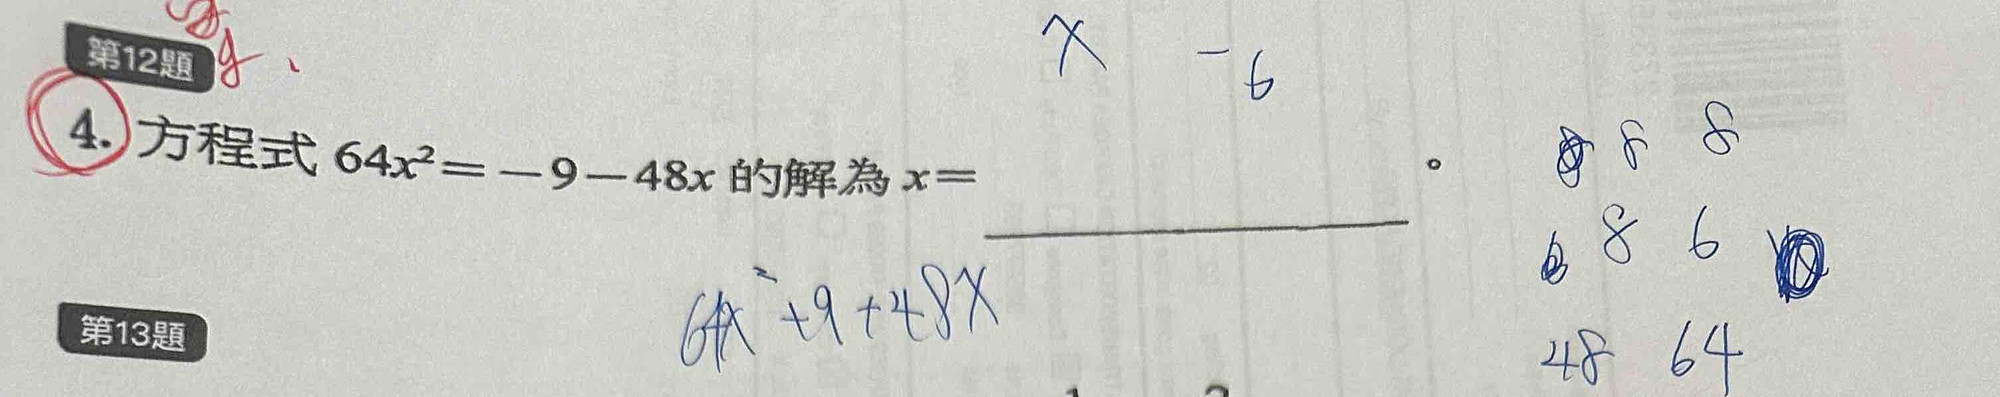 第12題
x -6
4. 方程式 64x²=-9-48x 的解為 x=________。
8 8
8 6
64x²+9+48x
48 64
第13題